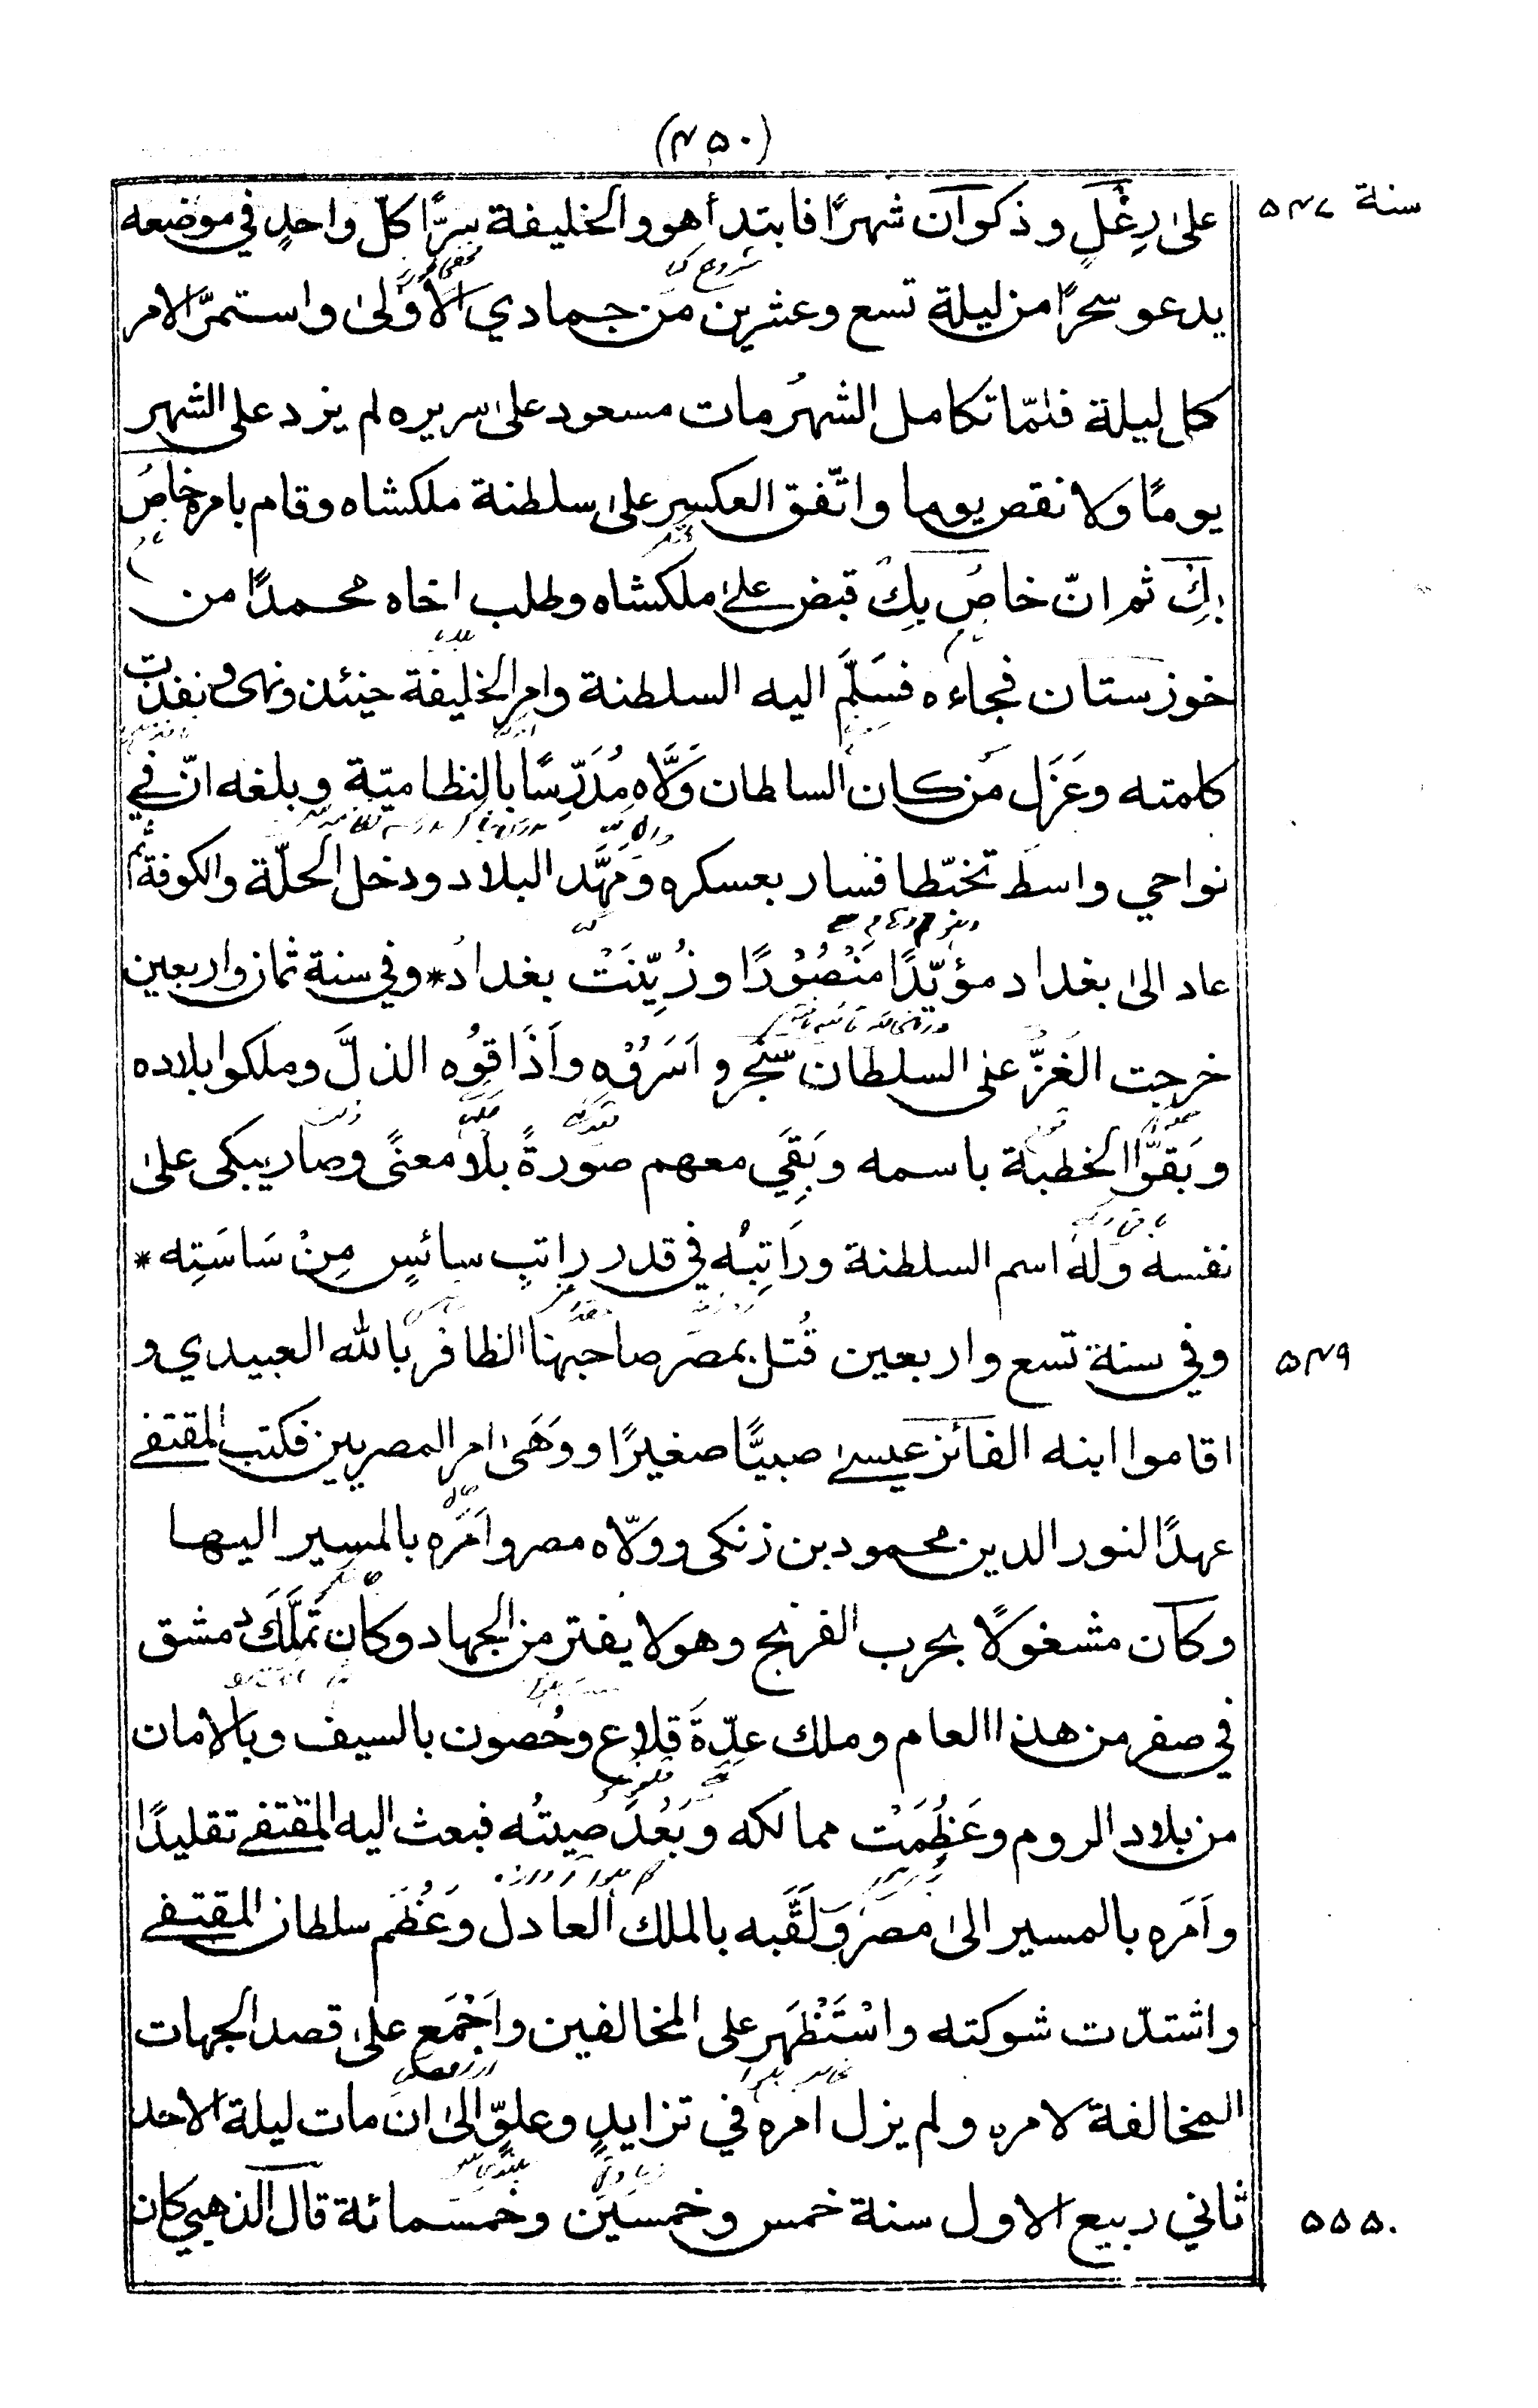 (۴۵۰)
سنة ۵۴۷
على رِعْلٍ وذكوان شهرًا فابتدأ هو والخليفة سِرًّا كلّ واحدٍ في موضعه
يدعو سحرًا من ليلة تسع وعشرين من جمادي الأولىٰ واستمرّ الامر
كل ليلة فلمّا تكامل الشهرُ مات مسعود علىٰ سريره لم يزد على الشهر
يومًا ولا نقص يوما واتّفق العكسر علىٰ سلطنة ملكشاه وقام بامره خاصُ
بِك ثم انّ خاص بِك قبض علىٰ ملكشاه وطلب اخاه محمدًا من
خوزستان فجاءه فسَلَّمَ اليه السلطنة وامر الخليفة حينئذ ونهى ونفذت
كلمته وعَزَل مَن كان السلطان وَلَّاه مُدَرِّسًا بالنظاميّة وبلغه انّ في
نواحي واسط تخبّطا فسار بعسكره ومَهَّد البلاد ودخل الحلّة والكوفة ثم
عاد الىٰ بغداد مؤيّدًا مَنْصُوْرًا وزُيِّنَتْ بغدادُ * وفي سنة ثمان واربعين
خرجت الغزُّ على السلطان سنجر واَسَرُوْه واَذَاقوُه الذلَّ وملكوا بلاده
وبَقوَّا الخطبة باسمه وبَقِيَ معهم صورةً بلا معنًى وصار يبكى علىٰ
نفسه وله اسم السلطنة ورَاتِبُه في قدر راتبِ سائسٍ مِنْ سَاسَتِه *
وفي سنة تسع واربعين قُتل بمصر صاحبها الظافر بالله العبيدي و
۵۴۹
اقاموا ابنه الفائز عيسىٰ صبيًّا صغيرًا ووَهَىٰ امر المصريين فكتب المقتفي
عهدًا لنور الدين محمود بن زنكى وولّاه مصر واَمَره بالمسير اليها
وكان مشغولًا بحرب الفرنج وهو لا يفتر من الجهاد وكان تَملَّكَ دمشق
في صفر من هذا العام وملك عِدّةَ قلاع وحُصون بالسيف وبالامان
من بلاد الروم وعَظُمَتْ ممالكه وبَعُدَ صيتُه فبعث اليه المقتفي تقليدًا
واَمَره بالمسير الىٰ مصر ولَقَّبه بالملك العادل وعَظُم سلطان المقتفي
واشتدّت شوكته واسْتَظْهَر على المخالفين واَجْمَع علىٰ قصد الجهات
المخالفة لامره ولم يزل امره في تزايدٍ وعلوٍّ الىٰ ان مات ليلة الاحد
ثاني ربيع الاول سنة خمس وخمسين وخمسمائة قال الذهبي كان
۵۵۵